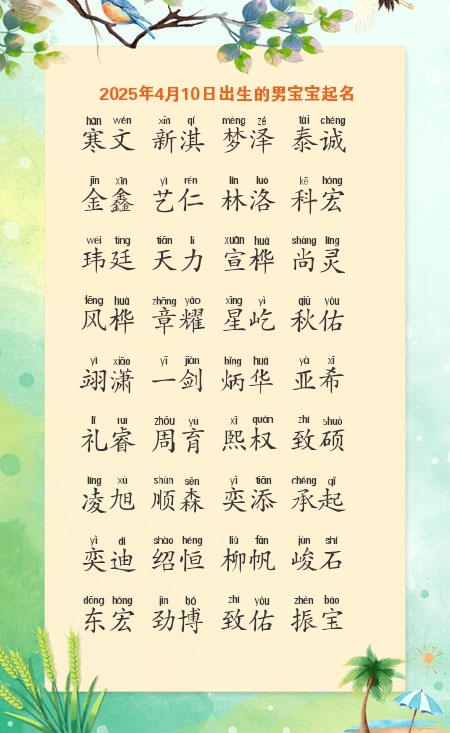 2025年4月10日出生的男宝宝起名
hán wén xīn qí mèng zé tài chéng
寒文 新淇 梦泽 泰诚
jīn xīn yì rén lín luò kē hóng
金鑫 艺仁 林洛 科宏
wěi tíng tiān lì xuān huà shàng líng
玮廷 天力 宣桦 尚灵
fēng huà zhāng yào xīng yì qiū yòu
风桦 章耀 星屹 秋佑
yì xiāo yī jiàn bǐng huá yà xī
翊潇 一剑 炳华 亚希
lǐ ruì zhōu yù xī quán zhì shuò
礼睿 周育 熙权 致硕
líng xù shùn sēn yì tiān chéng qǐ
凌旭 顺森 奕添 承起
yì dí shào héng liǔ fān jùn shí
奕迪 绍恒 柳帆 峻石
dōng hóng jìn bó zhì yòu zhèn bǎo
东宏 劲博 致佑 振宝